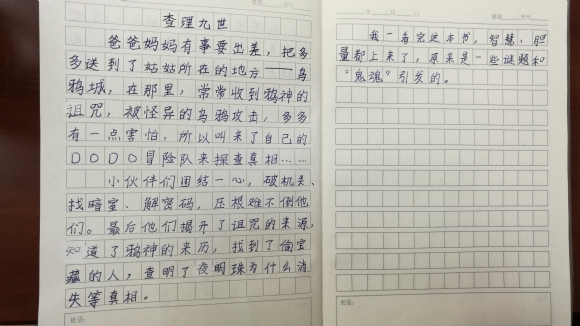 查理九世
爸爸妈妈有事要出差，把多
多送到了姑姑所在的地方——乌
鸦城，在那里，常常收到鸦神的
诅咒，被怪异的乌鸦攻击，多多
有一点害怕，所以叫来了自己的
DODO冒险队来探查真相……
小伙伴们团结一心，破机关、
找暗室、解密码，压根难不倒他
们。最后他们揭开了诅咒的来源，
知道了鸦神的来历，找到了偷宝
藏的人，查明了夜明珠为什么消
失等真相。
批语：
我一看完这本书，智慧、胆
量都上来了，原来是一些谜题和
“鬼魂”引发的。
批语：